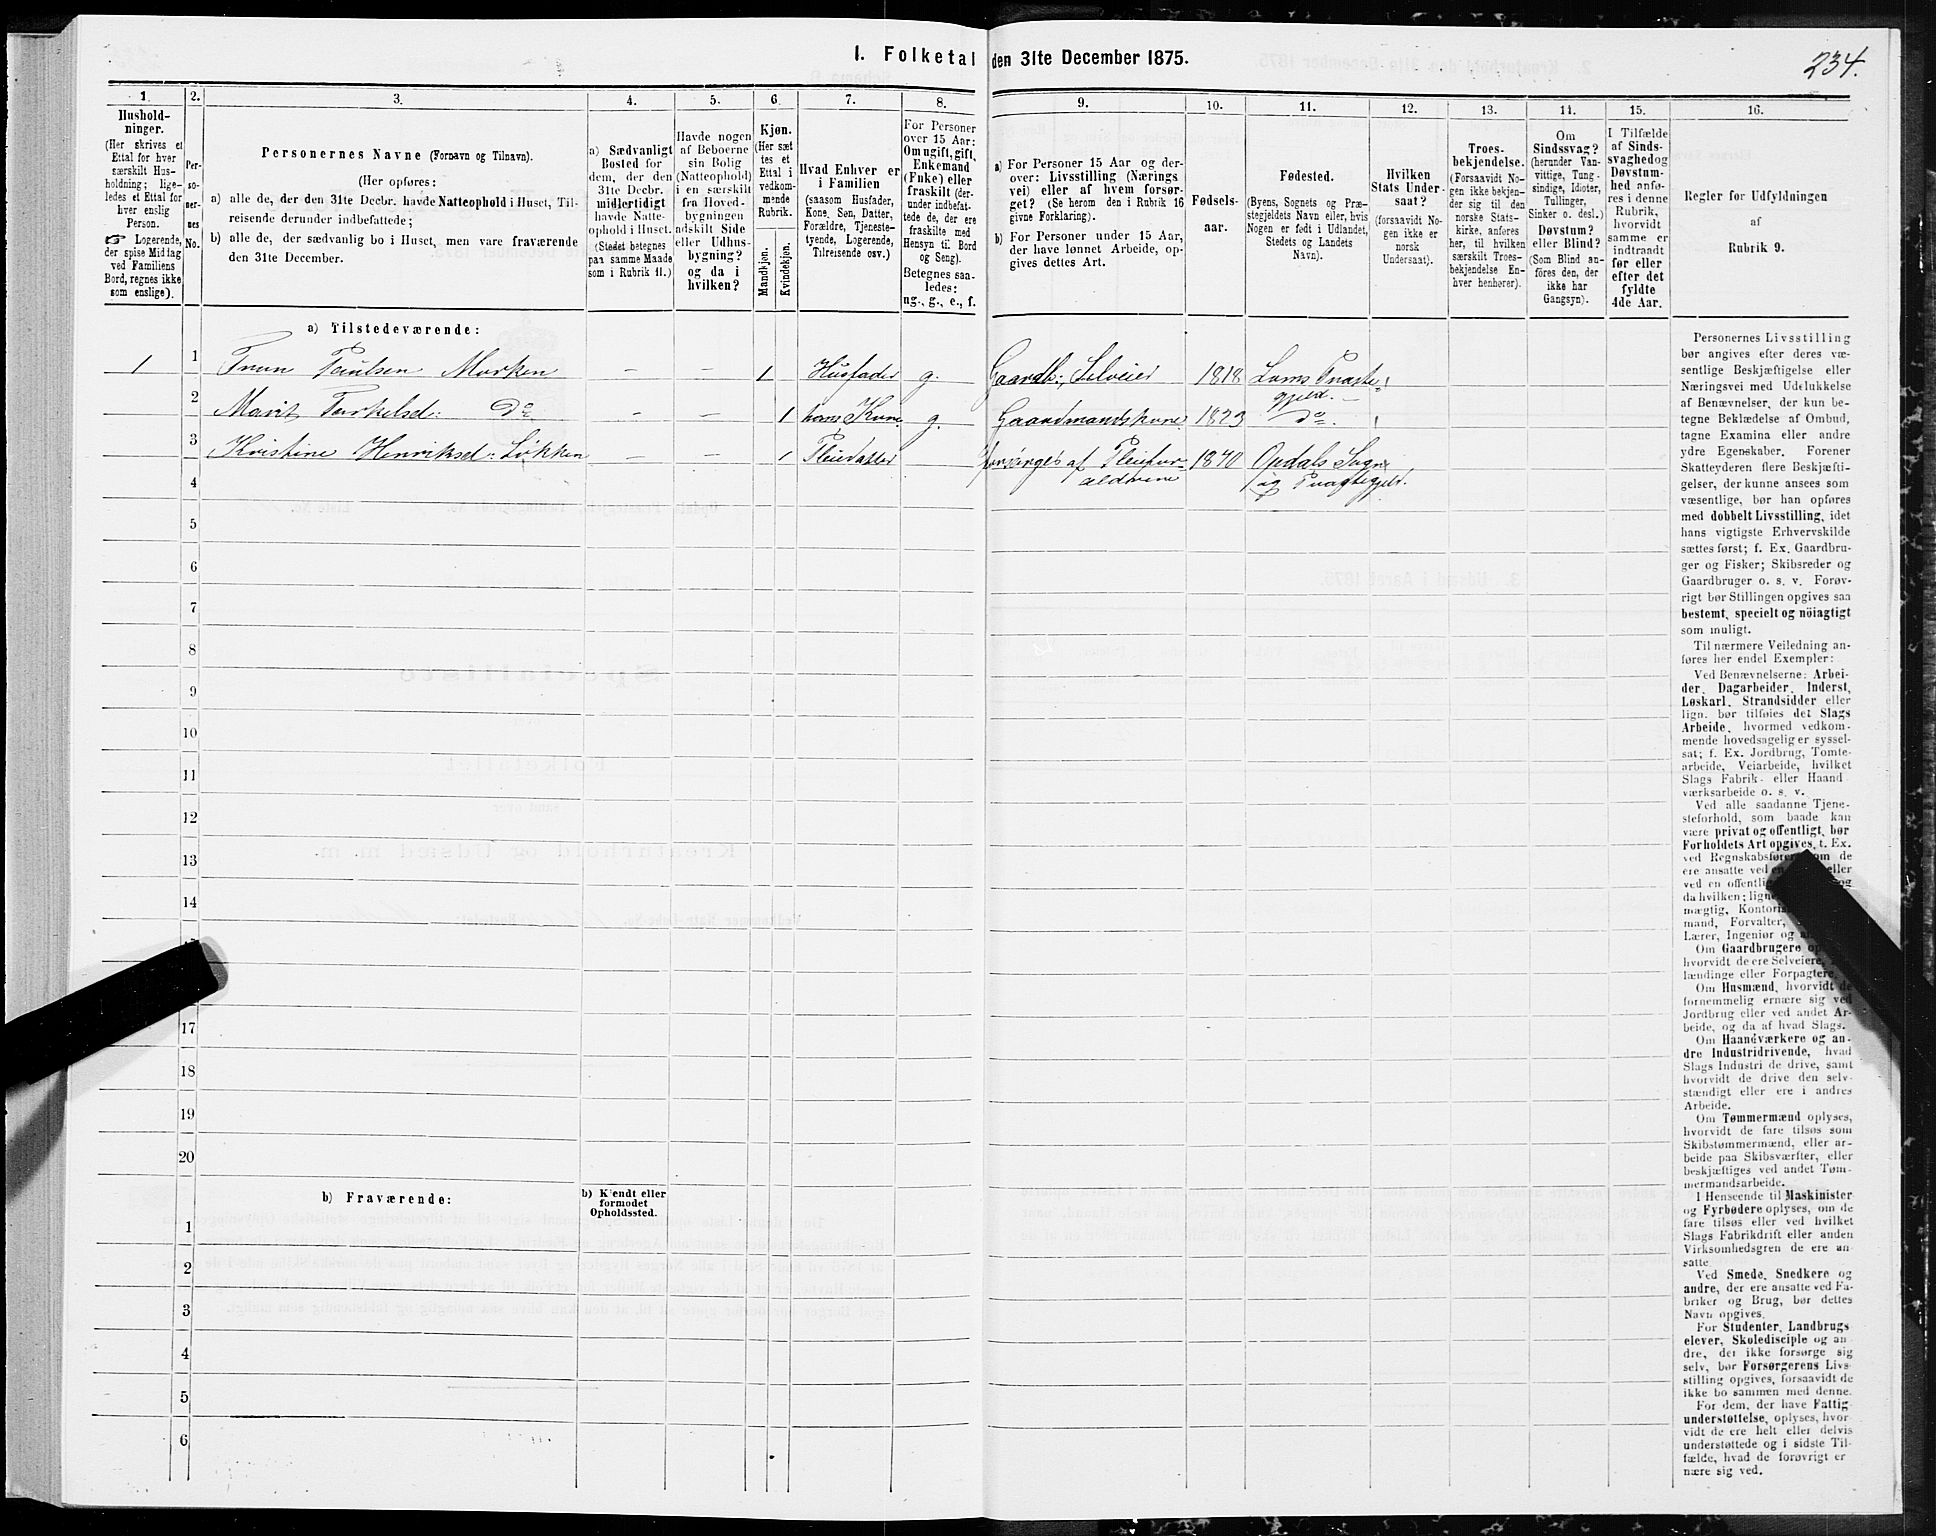 I. Folketal den 31te December 1875.
234.
1.
Hushold-
ninger.
(Her skrives et
Ettal for hver
særskilt Hus-
holdning; lige-
ledes et Ettal for
hver enslig
Person.
☞ Logerende,
der spise Middag
ved Familiens
Bord, regnes ikke
som enslige).
2.
Per-
so-
ner-
nes
No.
3.
Personernes Navne (Fornavn og Tilnavn).
(Her opføres:
a) alle de, der den 31te Decbr. havde Natteophold i Huset, Til-
reisende derunder indbefattede;
b) alle de, der sædvanlig bo i Huset, men vare fraværende
den 31te December.
4.
a) Sædvanligt
Bosted for
dem, der den
31te Decbr.
midlertidigt
havde Natte-
ophold i Huset.
(Stedet betegnes
paa samme Maade
som i Rubrik 11.)
5.
Havde nogen
af Beboerne
sin Bolig
(Natteophold)
i en særskilt
fra Hoved-
bygningen
adskilt Side
eller Udhus-
bygning?
og da i
hvilken?
6.
Kjøn.
(Her sæt-
tes et
Ettal i
vedkom-
mende
Rubrik.
Mandkjøn.
Kvindekjøn.
7.
Hvad Enhver er
i Familien
(saasom Husfader,
Kone, Søn, Datter,
Forældre, Tjeneste-
tyende, Logerende,
Tilreisende osv.)
8.
For Personer
over 15 Aar:
Om ugift, gift,
Enkemand
(Enke) eller
fraskilt (der-
under indbefat-
tede de, der ere
fraskilte med
Hensyn til Bord
og Seng).
Betegnes saa-
ledes:
ug., g., e., f.
9.
a) For Personer 15 Aar og der-
over: Livsstilling (Nærings
vei) eller af hvem forsør-
get? (Se herom den i Rubrik 16
givne Forklaring).
b) For Personer under 15 Aar,
der have lønnet Arbeide, op-
gives dettes Art.
10.
Fødsels-
aar.
11.
Fødested.
(Byens, Sognets og Præ-
stegjeldets Navn eller, hvis
Nogen er født i Udlandet,
Stedets og Landets
Navn).
12.
Hvilken
Stats Under-
saat?
(forsaavidt No-
gen ikke er
norsk
Undersaat).
13.
Troes-
bekjendelse.
(Forsaavidt No
gen ikke bekjen-
der sig til den
norske Stats-
kirke, anføres
her, til hvilken
særskilt Troes-
bekjendelse En-
hver henhører).
14.
Om
Sindssvag?
(herunder Van-
vittige, Tung-
sindige, Idioter,
Tullinger,
Sinker o. desl.)
Døvstum?
eller Blind?
(Som Blind an-
føres den, der
ikke har
Gangsyn).
15.
I Tilfælde
af Sinds-
svaghed og
Døvstum-
hed anfø-
res i denne
Rubrik,
hvorvidt
samme er
indtraadt
før eller
efter det
fyldte
4de Aar.
16.
Regler for Udfyldningen
af
Rubrik 9.
a) Tilstedeværende:
1 1 Tron Paulsen Morken – – 1 Husfader g. Gaardb., Selveier 1818 Loms Præste-
gjeld. –
2 Marit Torkelsd: Do – – 1 hans Kone g. Gaardmandskone 1823 do.
3 Kristine Henriksd: Løkken – – 1 Pleiedatter forsørges af Pleiefor- 1870 Opdals Sogn
ældrene og Præstegjeld.
4
5
6
7
8
9
10
11
12
13
14
17
18
19
20
b) Fraværende:
b) Kjendt eller
formodet
Opholdssted.
1
2
3
4
5
6
Personernes Livsstilling
bør angives efter deres væ-
sentlige Beskjæftigelse eller
Næringsvei med Udelukkelse
af Benævnelser, der kun be-
tegne Beklædelse af Ombud,
tagne Examina eller andre
ydre Egenskaber. Forener
Skatteyderen flere Beskjæfti-
gelser, der kunne ansees som
væsentlige, bør han opføres
med dobbelt Livsstilling, idet
hans vigtigste Erhvervskilde
sættes først; f. Ex. Gaardbru-
ger og Fisker; Skibsreder og
Gaardbruger o. s. v. Forøv-
rigt bør Stillingen opgives saa
bestemt, specielt og nöiagtigt
som muligt.
Til nærmere Veiledning an-
føres her endel Exempler:
Ved Benævnelserne: Arbei-
der, Dagarbeider, Inderst,
Løskarl, Strandsidder eller
lign. bør tilføies det Slags
Arbeide, hvormed vedkom-
mende hovedsagelig er syssel-
sat; f. Ex. Jordbrug, Tomte-
arbeide, Veiarbeide, hvilket
Slags Fabrik- eller Haand-
værksarbeide o. s. v.
Ved alle saadanne Tjene-
steforhold, som baade kan
være privat og offentligt, bør
Forholdets Art opgives, t. Ex.
ved Regnskabsfører om de
ere ansatte ved en eller
ved en offentlig og
da hvilken;
mægtig,
mand, Forvalter,
Lærer, Ingeniør og
Om Gaardbrugere
hvorvidt de ere Selveiere,
lændinge eller Forpagtere.
Om Husmænd, hvorvidt de
fornemmelig ernære sig ved
Jordbrug eller ved andet Ar-
beide, og da af hvad Slags.
Om Haandværkere og an-
dre Industridrivende, hvad
Slags Industri de drive, samt
hvorvidt de drive den selv-
stændigt eller ere i andres
Arbeide.
Om Tømmermænd oplyses,
hvorvidt de fare tilsøs som
Skibstømmermænd, eller ar-
beide paa Skibsværfter, eller
beskjæftiges ved andet Tøm-
mermandsarbeide.
I Henseende til Maskinister
og Fyrbødere oplyses, om de
fare tilsøs eller ved hvilket
Slags Fabrikdrift eller anden
Virksomhedsgren de ere an-
satte.
Ved Smede, Snedkere og
andre, der ere ansatte ved Fa-
briker og Brug, bør dettes
Navn opgives.
For Studenter, Landbrugs-
elever, Skoledisciple og an-
dre, der ikke forsørge sig
selv, bør Forsørgerens Livs-
stilling opgives, forsaavidt de
ikke bo sammen med denne.
For dem, der have Fattig-
understøttelse, oplyses, hvor-
vidt de ere helt eller delvis
understøttede og i sidste Til-
fælde, hvad de forøvrigt er-
nære sig ved.